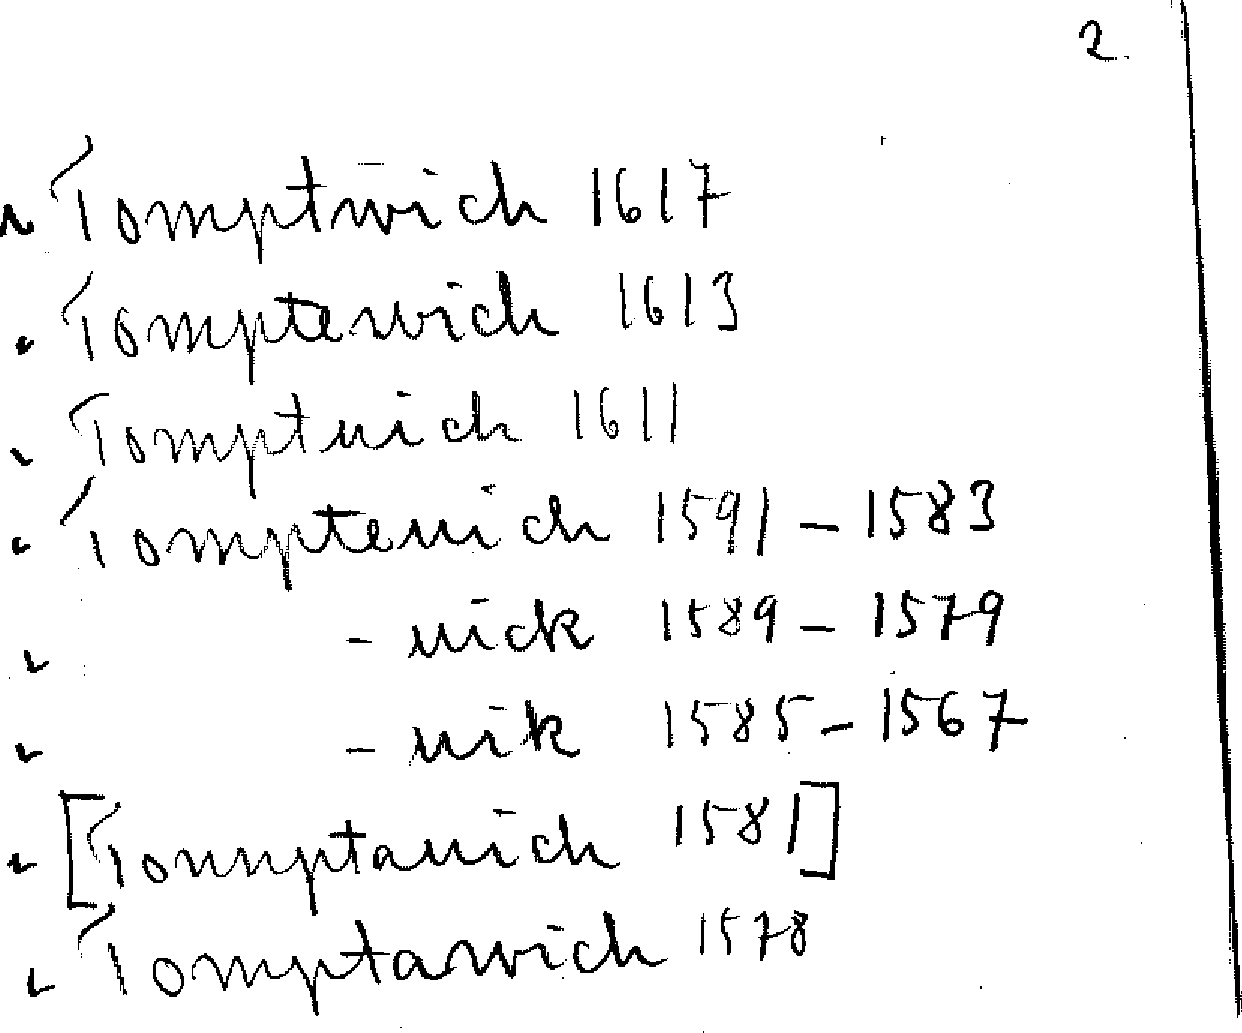 2.
Tomptwich 1617
Tomptewich 1613
Tomptuich 1611
Tompteuich 1591 – 1583
- uick 1589 – 1579
- uik 1585 – 1567
[Tomptauich 1581]
Tomptawich 1578